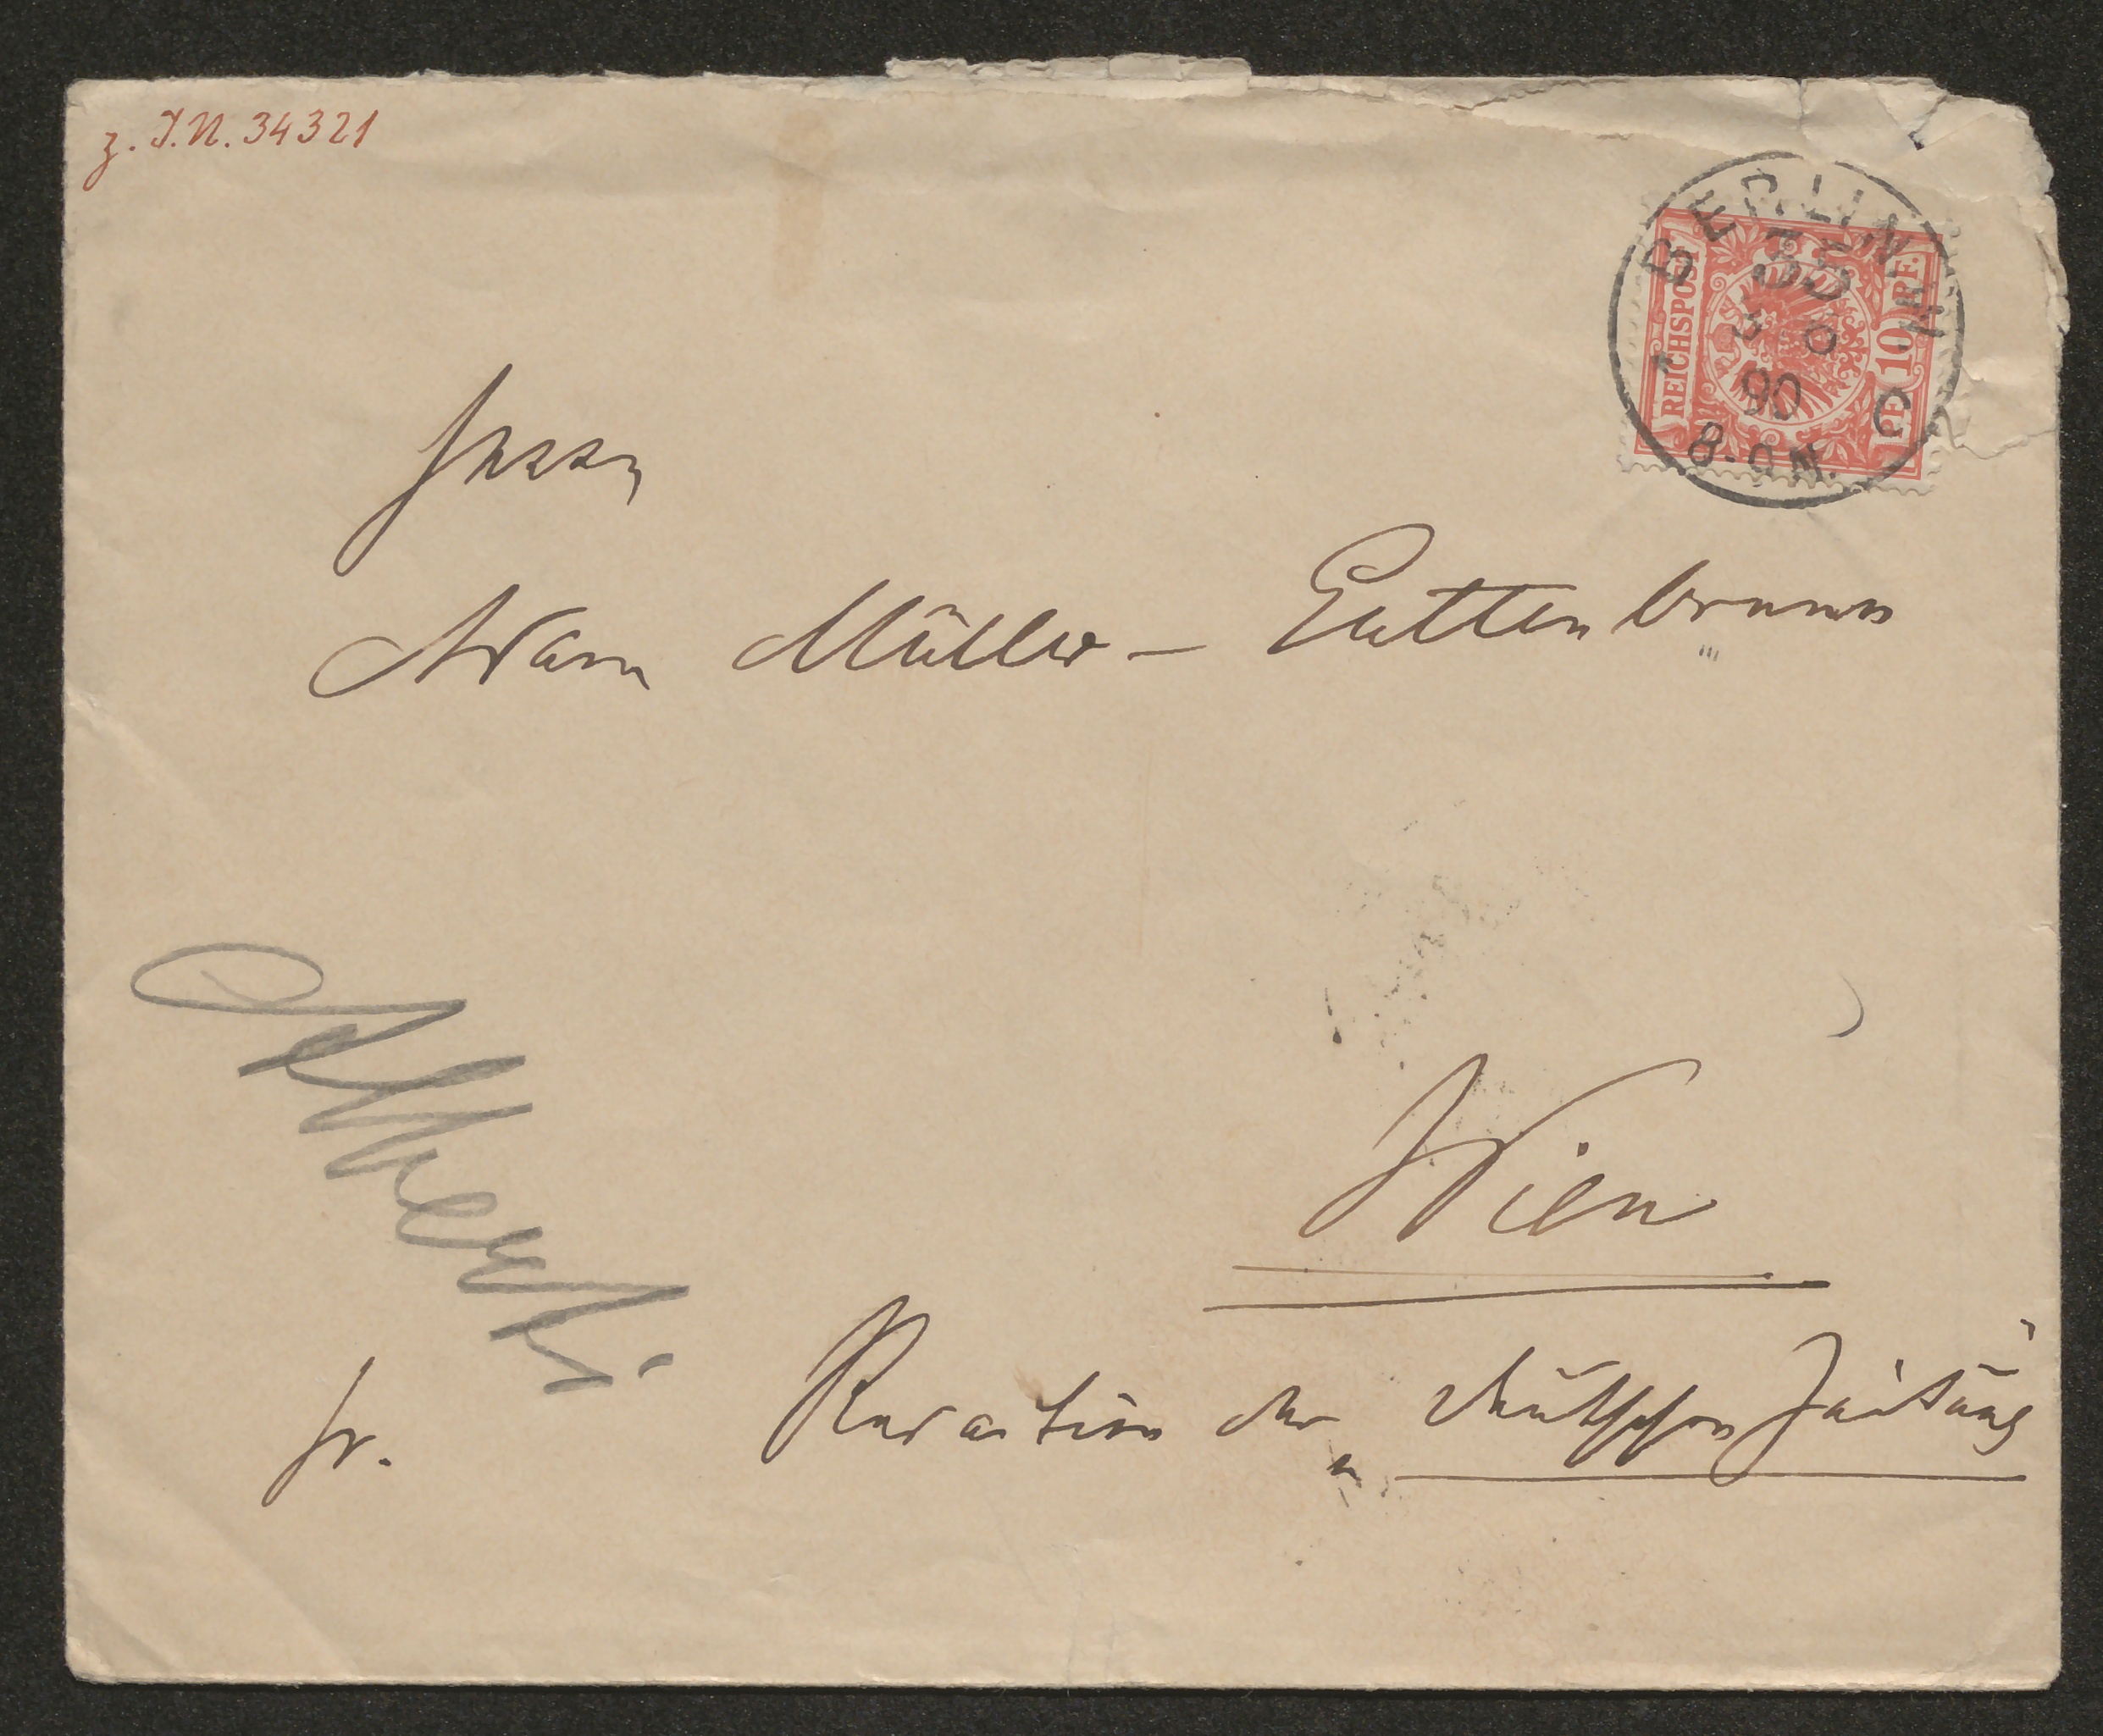 z. I.N. 34321
BERLIN W.
35
3 6
90
8-9 N.
C
REICHSPOST
10 PF.
Herrn
Adam Müller-Guttenbrunn
Wien
fr.
Redaction der „Deutschen Zeitung"